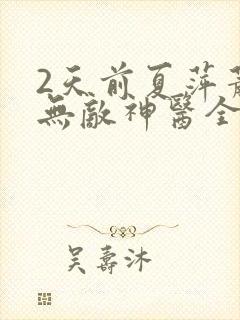 2天前夏萍
無敵神醫全
吳壽沐